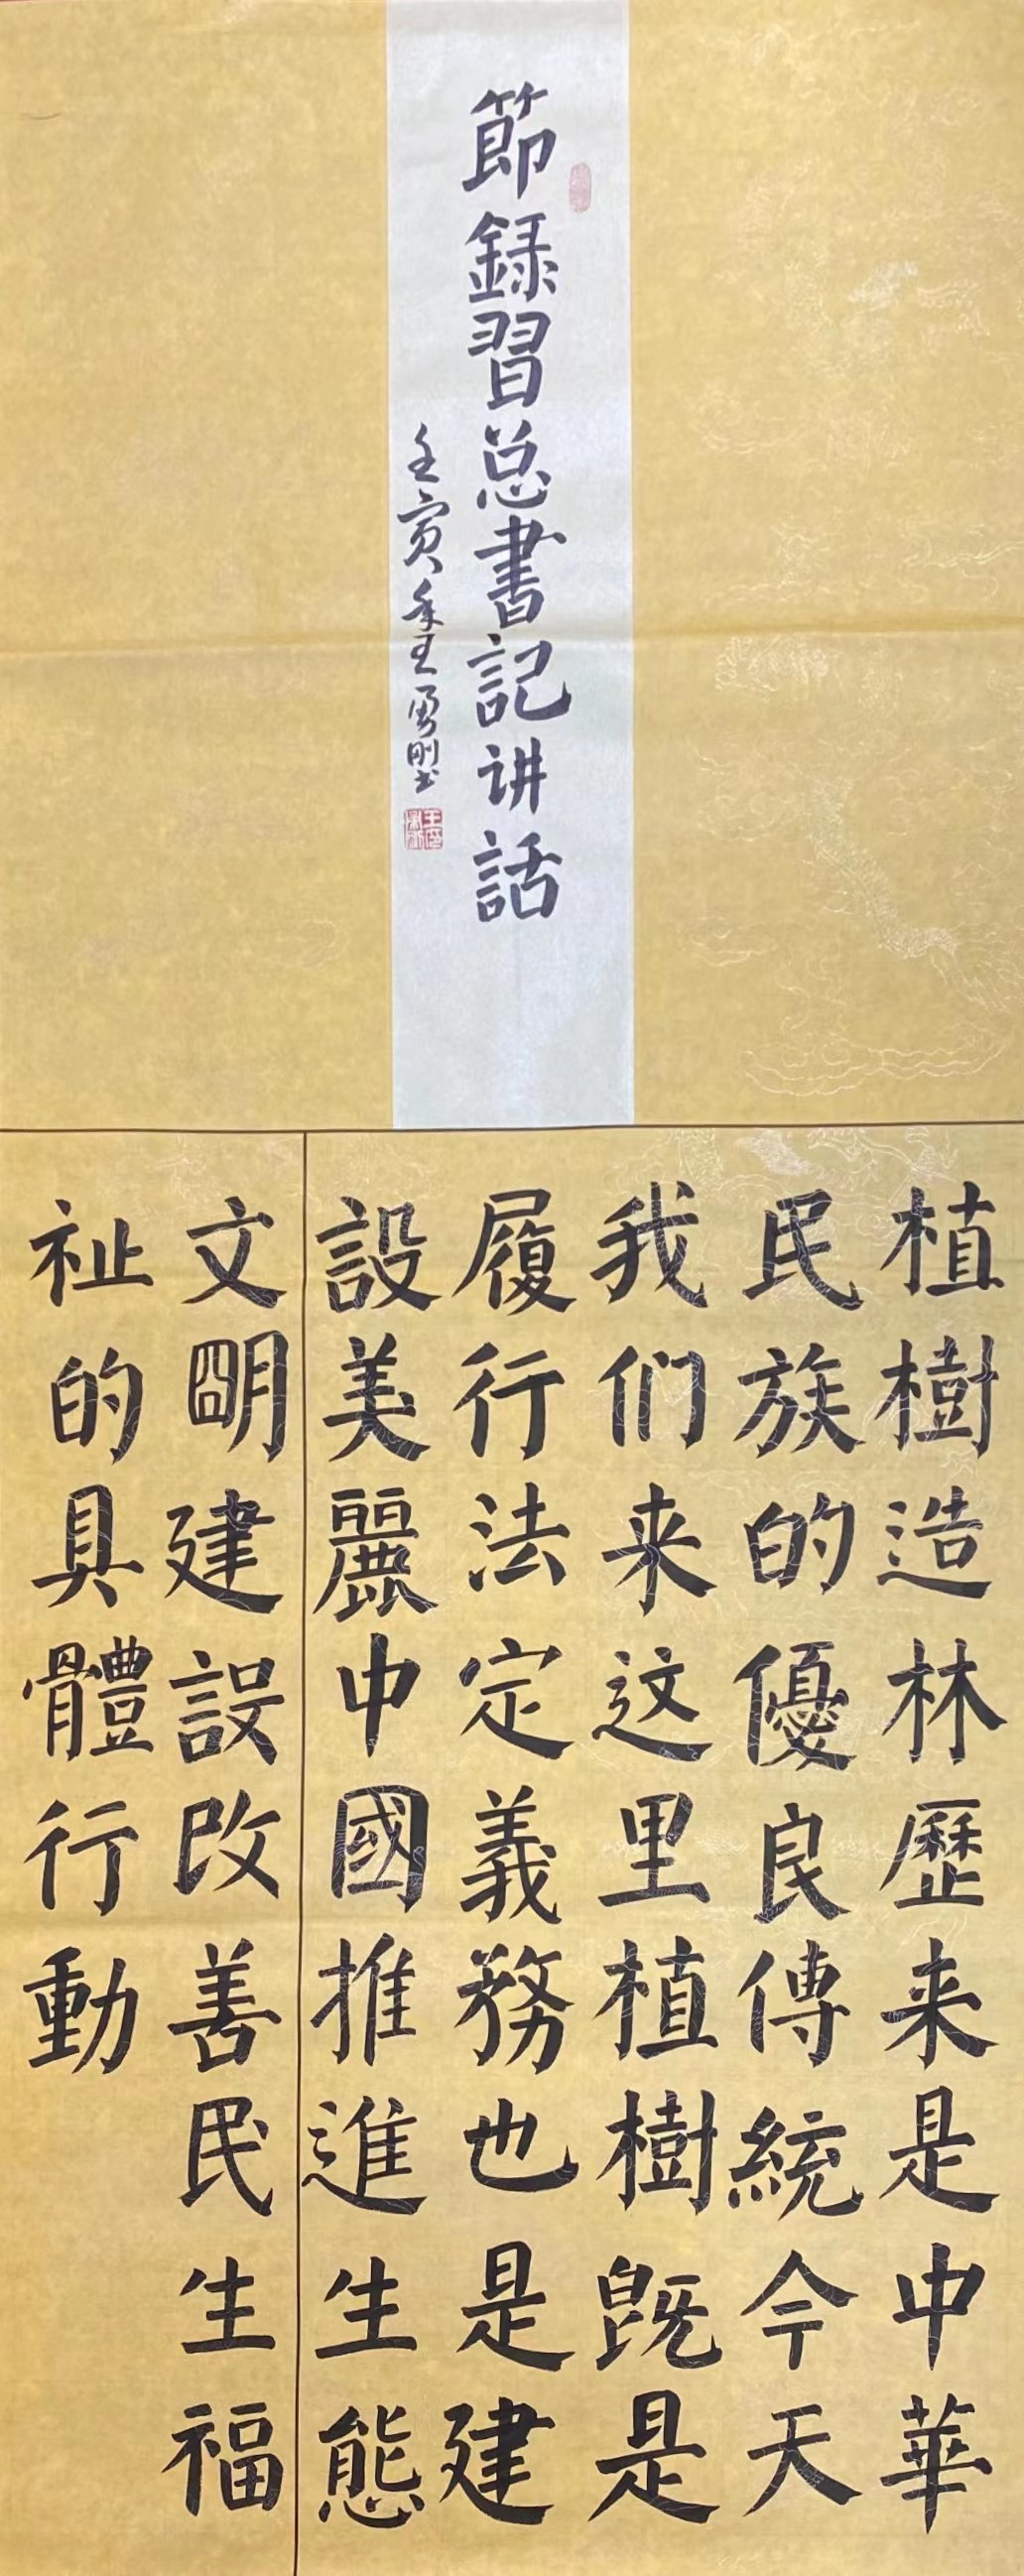 節録習总書記讲話
壬寅年王勇剛書
植樹造林歷来是中華
民族的優良傳統今天
我们来这里植樹既是
履行法定義務也是建
設美麗中國推進生態
文明建設改善民生福
祉的具體行動